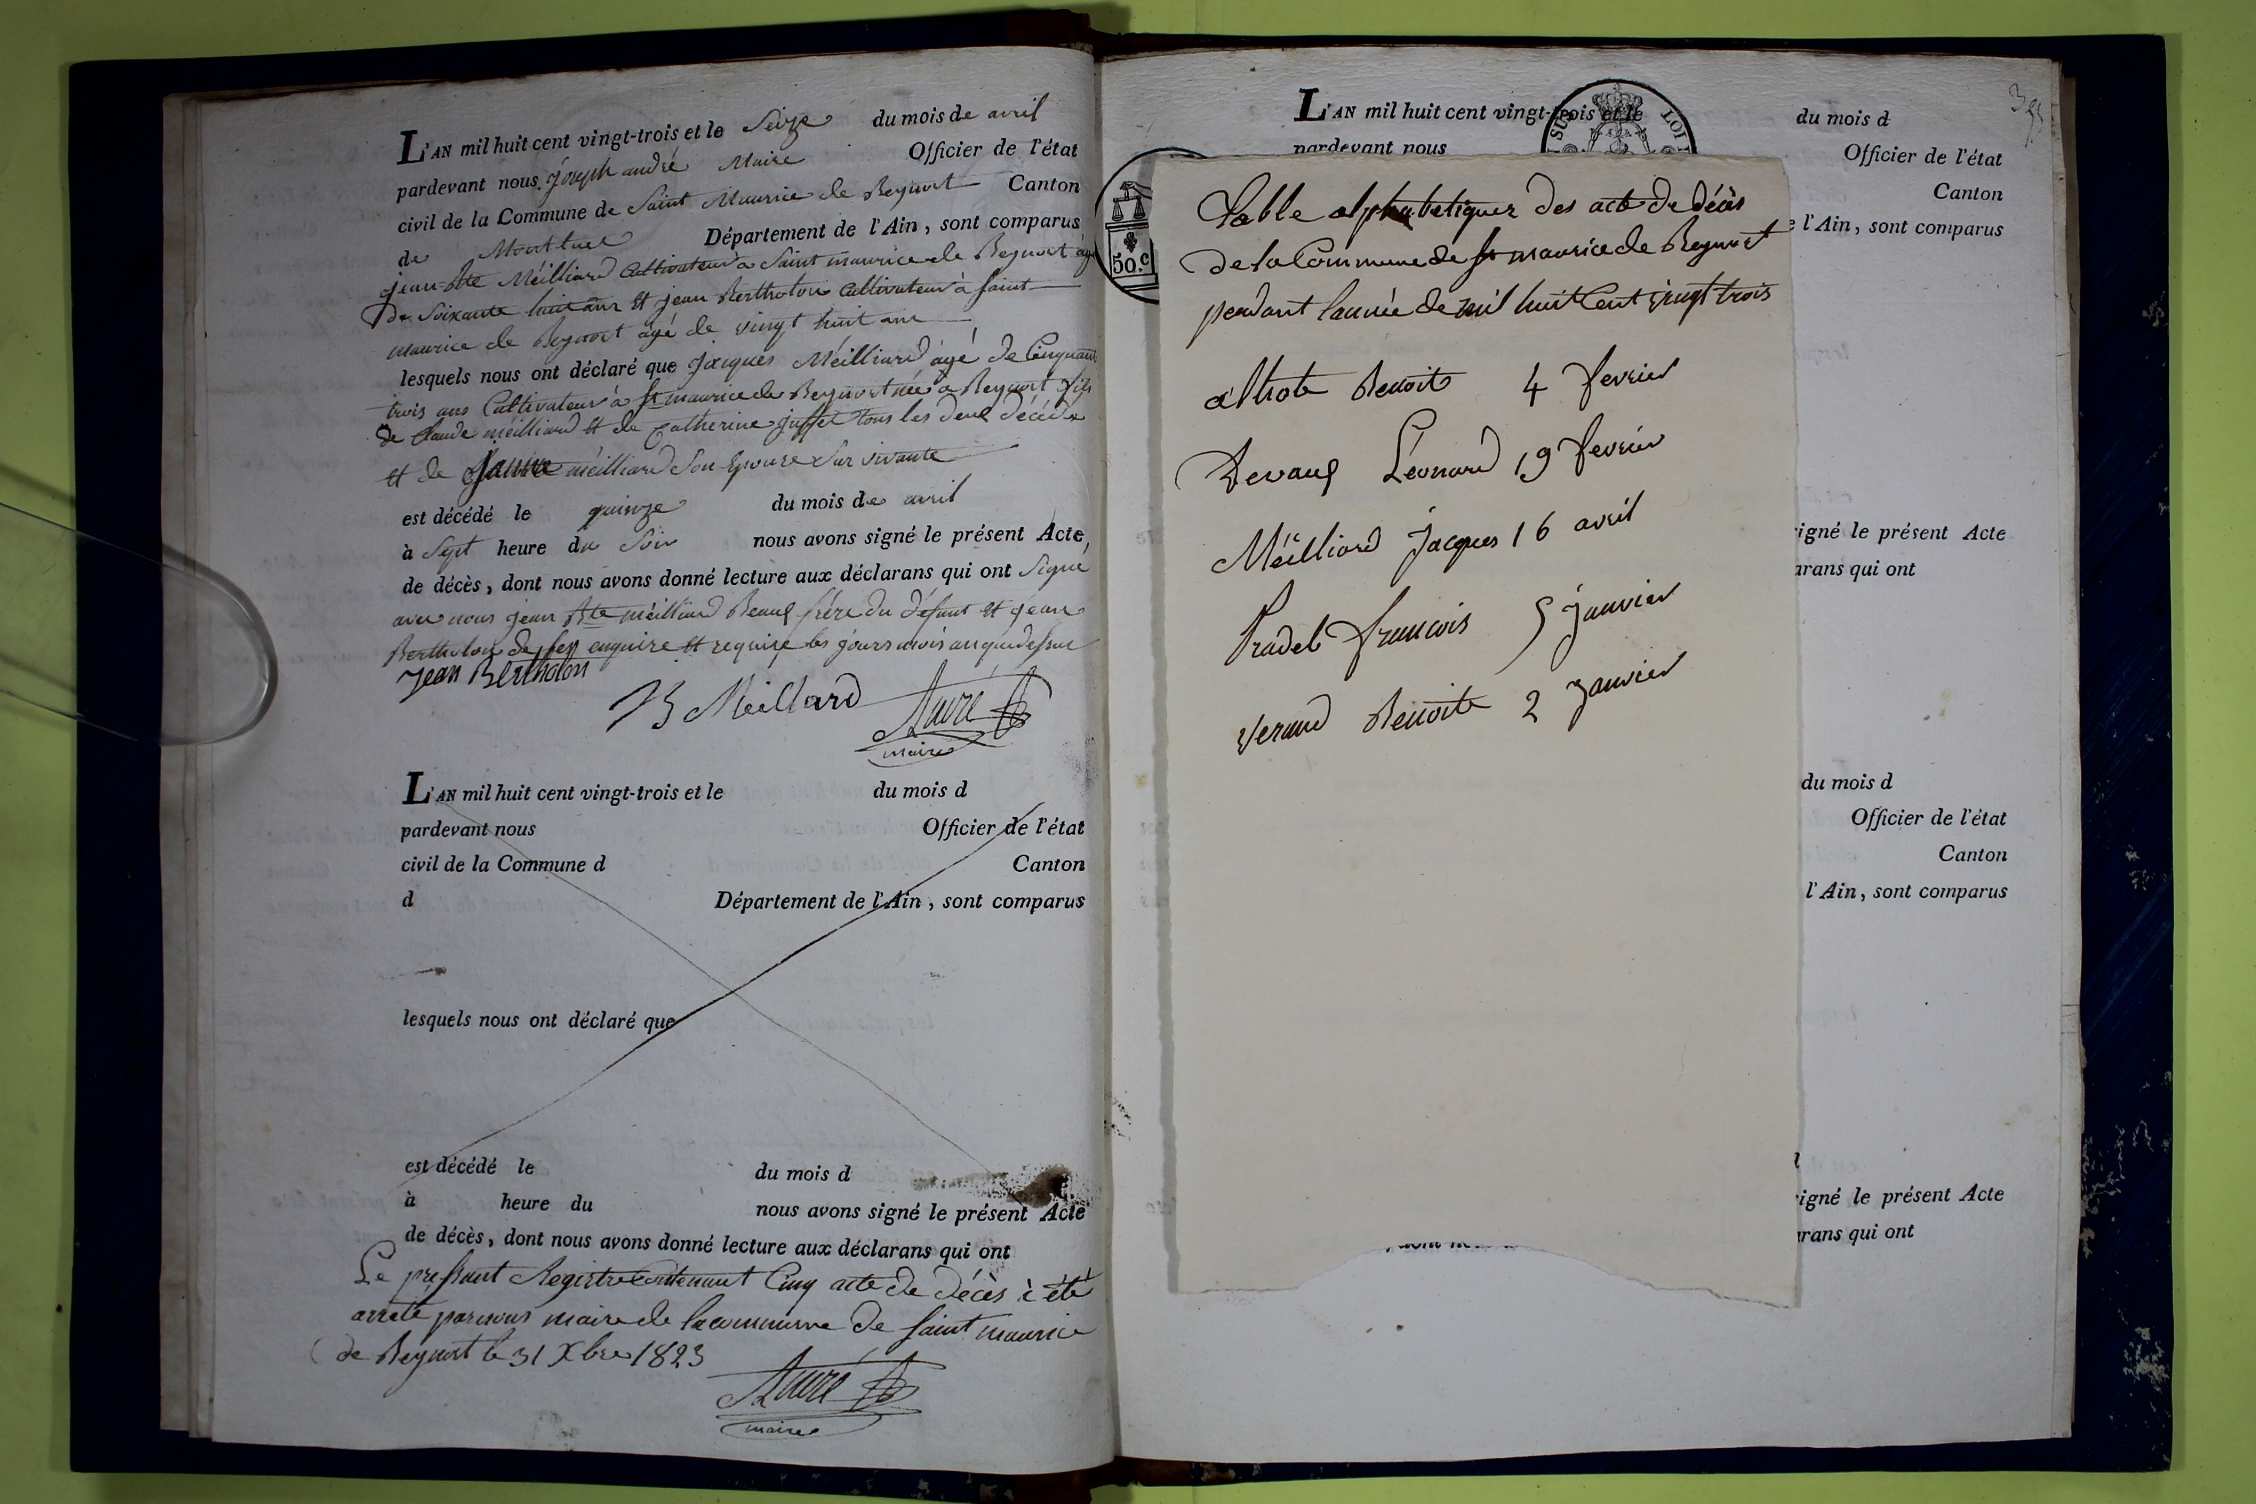 L'AN mil huit cent vingt-trois et le Seize du mois de avril
pardevant nous, joseph andré Maire Officier de l'état
civil de la Commune de Saint Maurice de Beynost Canton
de Montluel Département de l'Ain, sont comparus
jean Bte Méilliard Cultivateur a Saint maurice de Beynost agé
De Soixante huit ans et jean Bertholon Cultivateur à saint
maurice de Beynost agé de vingt huit ans
lesquels nous ont déclaré que jacques Méilliard agé de Cinquante
trois ans Cultivateur à St maurice de Beynost née a Beynost fils
de Claude méilliard et de Catherine juffet tous les deux décédés
et de jeanne méilliard Son Epouse Sur vivante
est décédé le quinze du mois de avril
à Sept heure du Soir nous avons signé le présent Acte,
de décès, dont nous avons donné lecture aux déclarans qui ont Signé
avec nous jean Bte méilliard Beaux frére du défunt et jean
Bertholon de enquire et require les jours mois an que dessus
Jean Bertholon
B Meillard
André
maire
L'AN mil huit cent vingt-trois et le du mois d
pardevant nous Officier de l'état
civil de la Commune d Canton
d Département de l'Ain, sont comparus
lesquels nous ont déclaré que
est décédé le du mois d
à heure du nous avons signé le présent Acte
de décès, dont nous avons donné lecture aux déclarans qui ont
Le pressant Registre Contenant Cinq acte de décès à été
arreté par nous maire de la commune de saint maurice
de Beynost le 31 Xbre 1823
André
maire
L'AN mil huit cent vingt-trois et le du mois d
pardevant nous Officier de l'état
Canton
l'Ain, sont comparus
SUR
LOI
50.c
Table alphabetiquez des acte de décès
de la Commune de St maurice de Beynost
pendant l'année de mil huit Cent vingt trois
Benoite 4 fevrier
Devaux Léonard 19 fevrier
Méilliard jacques 16 avril
Pradel francois 5 janvier
Verand Benoite 2 janvier
signé le présent Acte
arans qui ont
du mois d
Officier de l'état
Canton
l'Ain, sont comparus
signé le présent Acte
arans qui ont